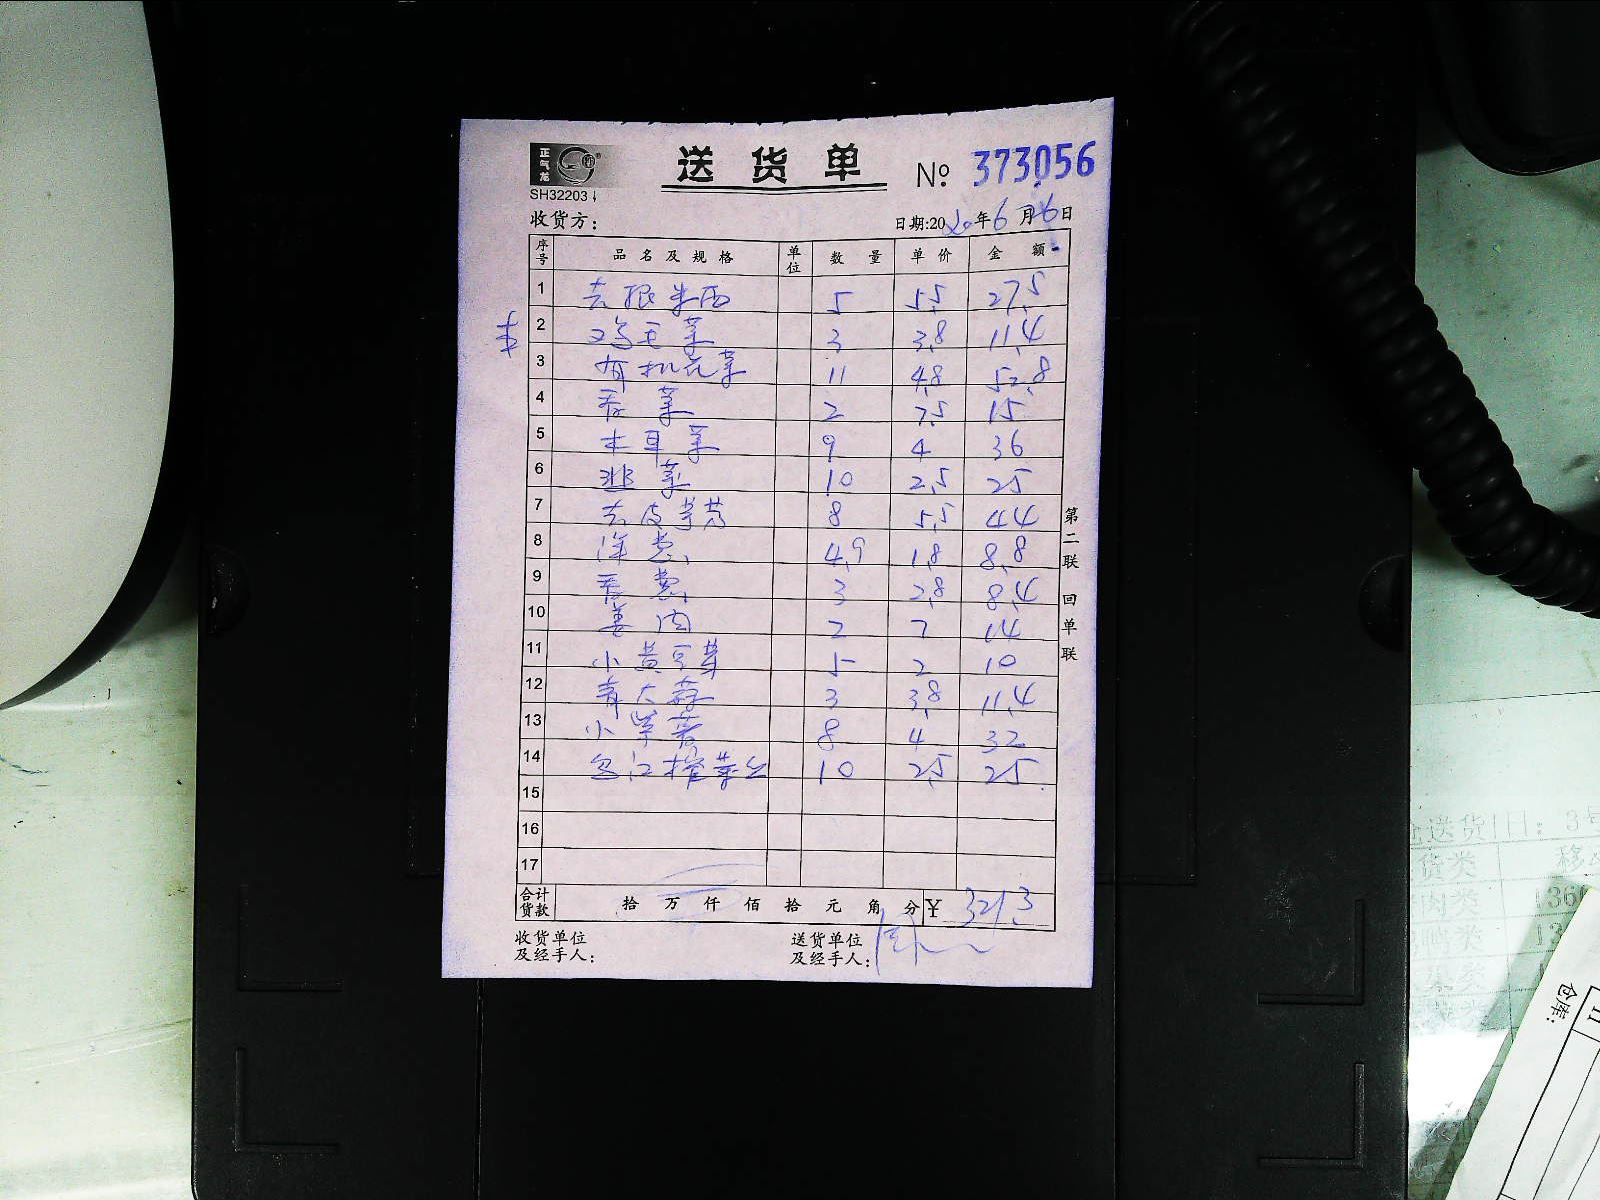 正气龙
送货单 № 373056
SH32203
收货方: 日期:2020年6月26日
序号 品名及规格 单位 数量 单价 金额
1 去根米西 5 5.5 27.5
2 鸡毛菜 3 3.8 11.4
3 有机花菜 11 4.8 52.8
4 香菜 2 7.5 15
5 木耳菜 9 4 36
6 韭菜 10 2.5 25
7 去皮芋艿 8 5.5 44
8 洋葱 4.9 1.8 8.8
9 香葱 3 2.8 8.4
10 姜肉 2 7 14
11 小黄豆芽 5 2 10
12 青大蒜 3 3.8 11.4
13 小米香 8 4 32
14 乌江榨菜丝 10 2.5 25
15
16
17
合计货款 拾万仟佰拾元角分 ¥ 321.3
收货单位及经手人: 送货单位及经手人:
第二联 回单联
送货日: 3号
货类 移
肉类 136
鸭类 13
仓库: